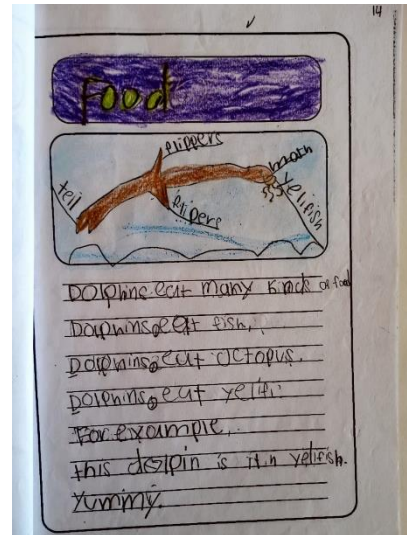 14
Food
flippers
moath
yelifish
teil
flipers
Dolphins eat many kinds of food
Dolphins eat fish.
Dolphins eat octopus.
Dolphins eat yelifi
For example,
this dolpin is itin yelifish.
Yummy.